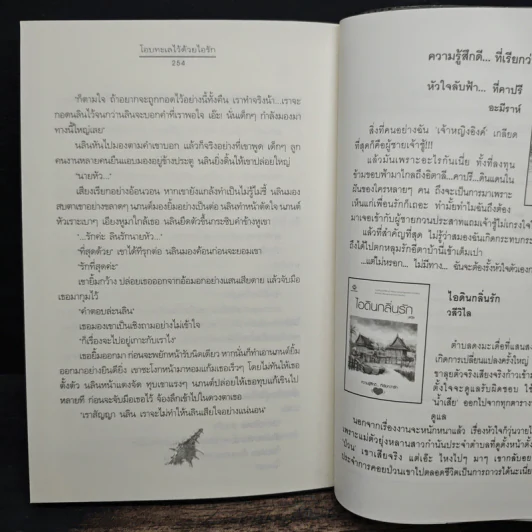 โอบทะเลไว้ด้วยใจรัก
254
"ก็ตามใจ ถ้าอยากจะถูกกอดไว้อย่างนี้ทั้งคืน เราทำจริงน้า...เราจะ
กอดนลินไว้จนกว่านลินจะบอกคำที่เราพอใจ เอ๊ะ! นั่นเด็กๆ กำลังมองมา
ทางนี้ใหญ่เลย"
นลินหันไปมองตามคำเขาบอก แล้วก็จริงอย่างที่เขาพูด เด็กๆ ลูก
คนงานหลายคนยืนแอบมองอยู่ข้างประตู นลินยิ่งดิ้นให้เขาปล่อยใหญ่
"นายหัว..."
เสียงเรียกอย่างอ้อนวอน หากเขายังแกล้งทำเป็นไม่รู้ไม่ชี้ นลินมอง
"...รักค่ะ ลินรักนายหัว..."
"ที่สุดด้วย" เขาได้ทีรุกต่อ นลินมองค้อนก่อนจะยอมเขา
"รักที่สุดค่ะ"
เขายิ้มกว้าง ปล่อยเธอออกจากอ้อมกอดอย่างแสนเสียดาย แล้วจับมือ
เธอมากุมไว้
"คำตอบล่ะนลิน"
เธอมองเขาเป็นเชิงถามอย่างไม่เข้าใจ
"ก็เรื่องจะไปอยู่เกาะกับเราไง"
เธอยิ้มออกมา ก่อนจะพยักหน้ารับนิดเดียว หากนั่นก็ทำเอานภนต์ยิ้ม
ออกมาอย่างยินดียิ่ง เขาชะโงกหน้ามาหอมแก้มเธอเร็วๆ โดยไม่ทันให้เธอ
ตั้งตัว นลินหน้าแดงจัด ทุบเขาแรงๆ นภนต์ปล่อยให้เธอทุบแก้เขินไป
หลายที ก่อนจะจับมือเธอไว้ จ้องลึกเข้าไปในดวงตาเธอ
"เราสัญญา นลิน เราจะไม่ทำให้นลินเสียใจอย่างแน่นอน"
ความรู้สึกดี... ที่เรียกว่
หัวใจลับฟ้า... ที่คาปรี
อะมีราห์
สิ่งที่คนอย่างฉัน 'เจ้าหญิงอิงค์' เกลียด
ที่สุดก็คือผู้ชายเจ้าชู้!!!
แล้วมันเพราะอะไรกันเนี่ย ทั้งที่ลงทุน
ข้ามขอบฟ้ามาไกลถึงอิตาลี...คาปรี...ดินแดนใน
ฝันของใครหลายๆ คน ถึงจะเป็นการมาเพราะ
แล้วที่สำคัญที่สุด ไม่รู้ว่าสมองฉันเกิดกระทบกระ
ถึงได้ไปตกหลุมรักอีตาบ้านี่เข้าเต็มเปา
...แต่ไม่หรอก... ไม่มีทาง... ฉันจะต้องรั้งหัวใจตัวเอง
ไอดินกลิ่นรัก
ไอดินกลิ่นรัก
วลีวิไล
ตำบลดงมะเดื่อที่แสนสง
เกิดการเปลี่ยนแปลงครั้งใหญ่
เขาลุยตัวจริงเสียงจริงก้าวเข้ามา
ตั้งใจจะดูแลรับผิดชอบ ใช้
'น้ำเสีย' ออกไปจากทุกตาราง
ดูแล
นอกจากเรื่องงานจะหนักหนาแล้ว เรื่องหัวใจก็วุ่นวายไ
เพราะแม่ตัวยุ่งหลานสาวกำนันประจำตำบลที่ดูตั้งหน้าตั้ง
'ป่วน' เขาเสียจริง แต่ไอ้ๆ ไหงไปๆ มาๆ เขากลับอย
ประจำการคอยป่วนเขาไปตลอดชีวิตเป็นการถาวรได้นะเนี่